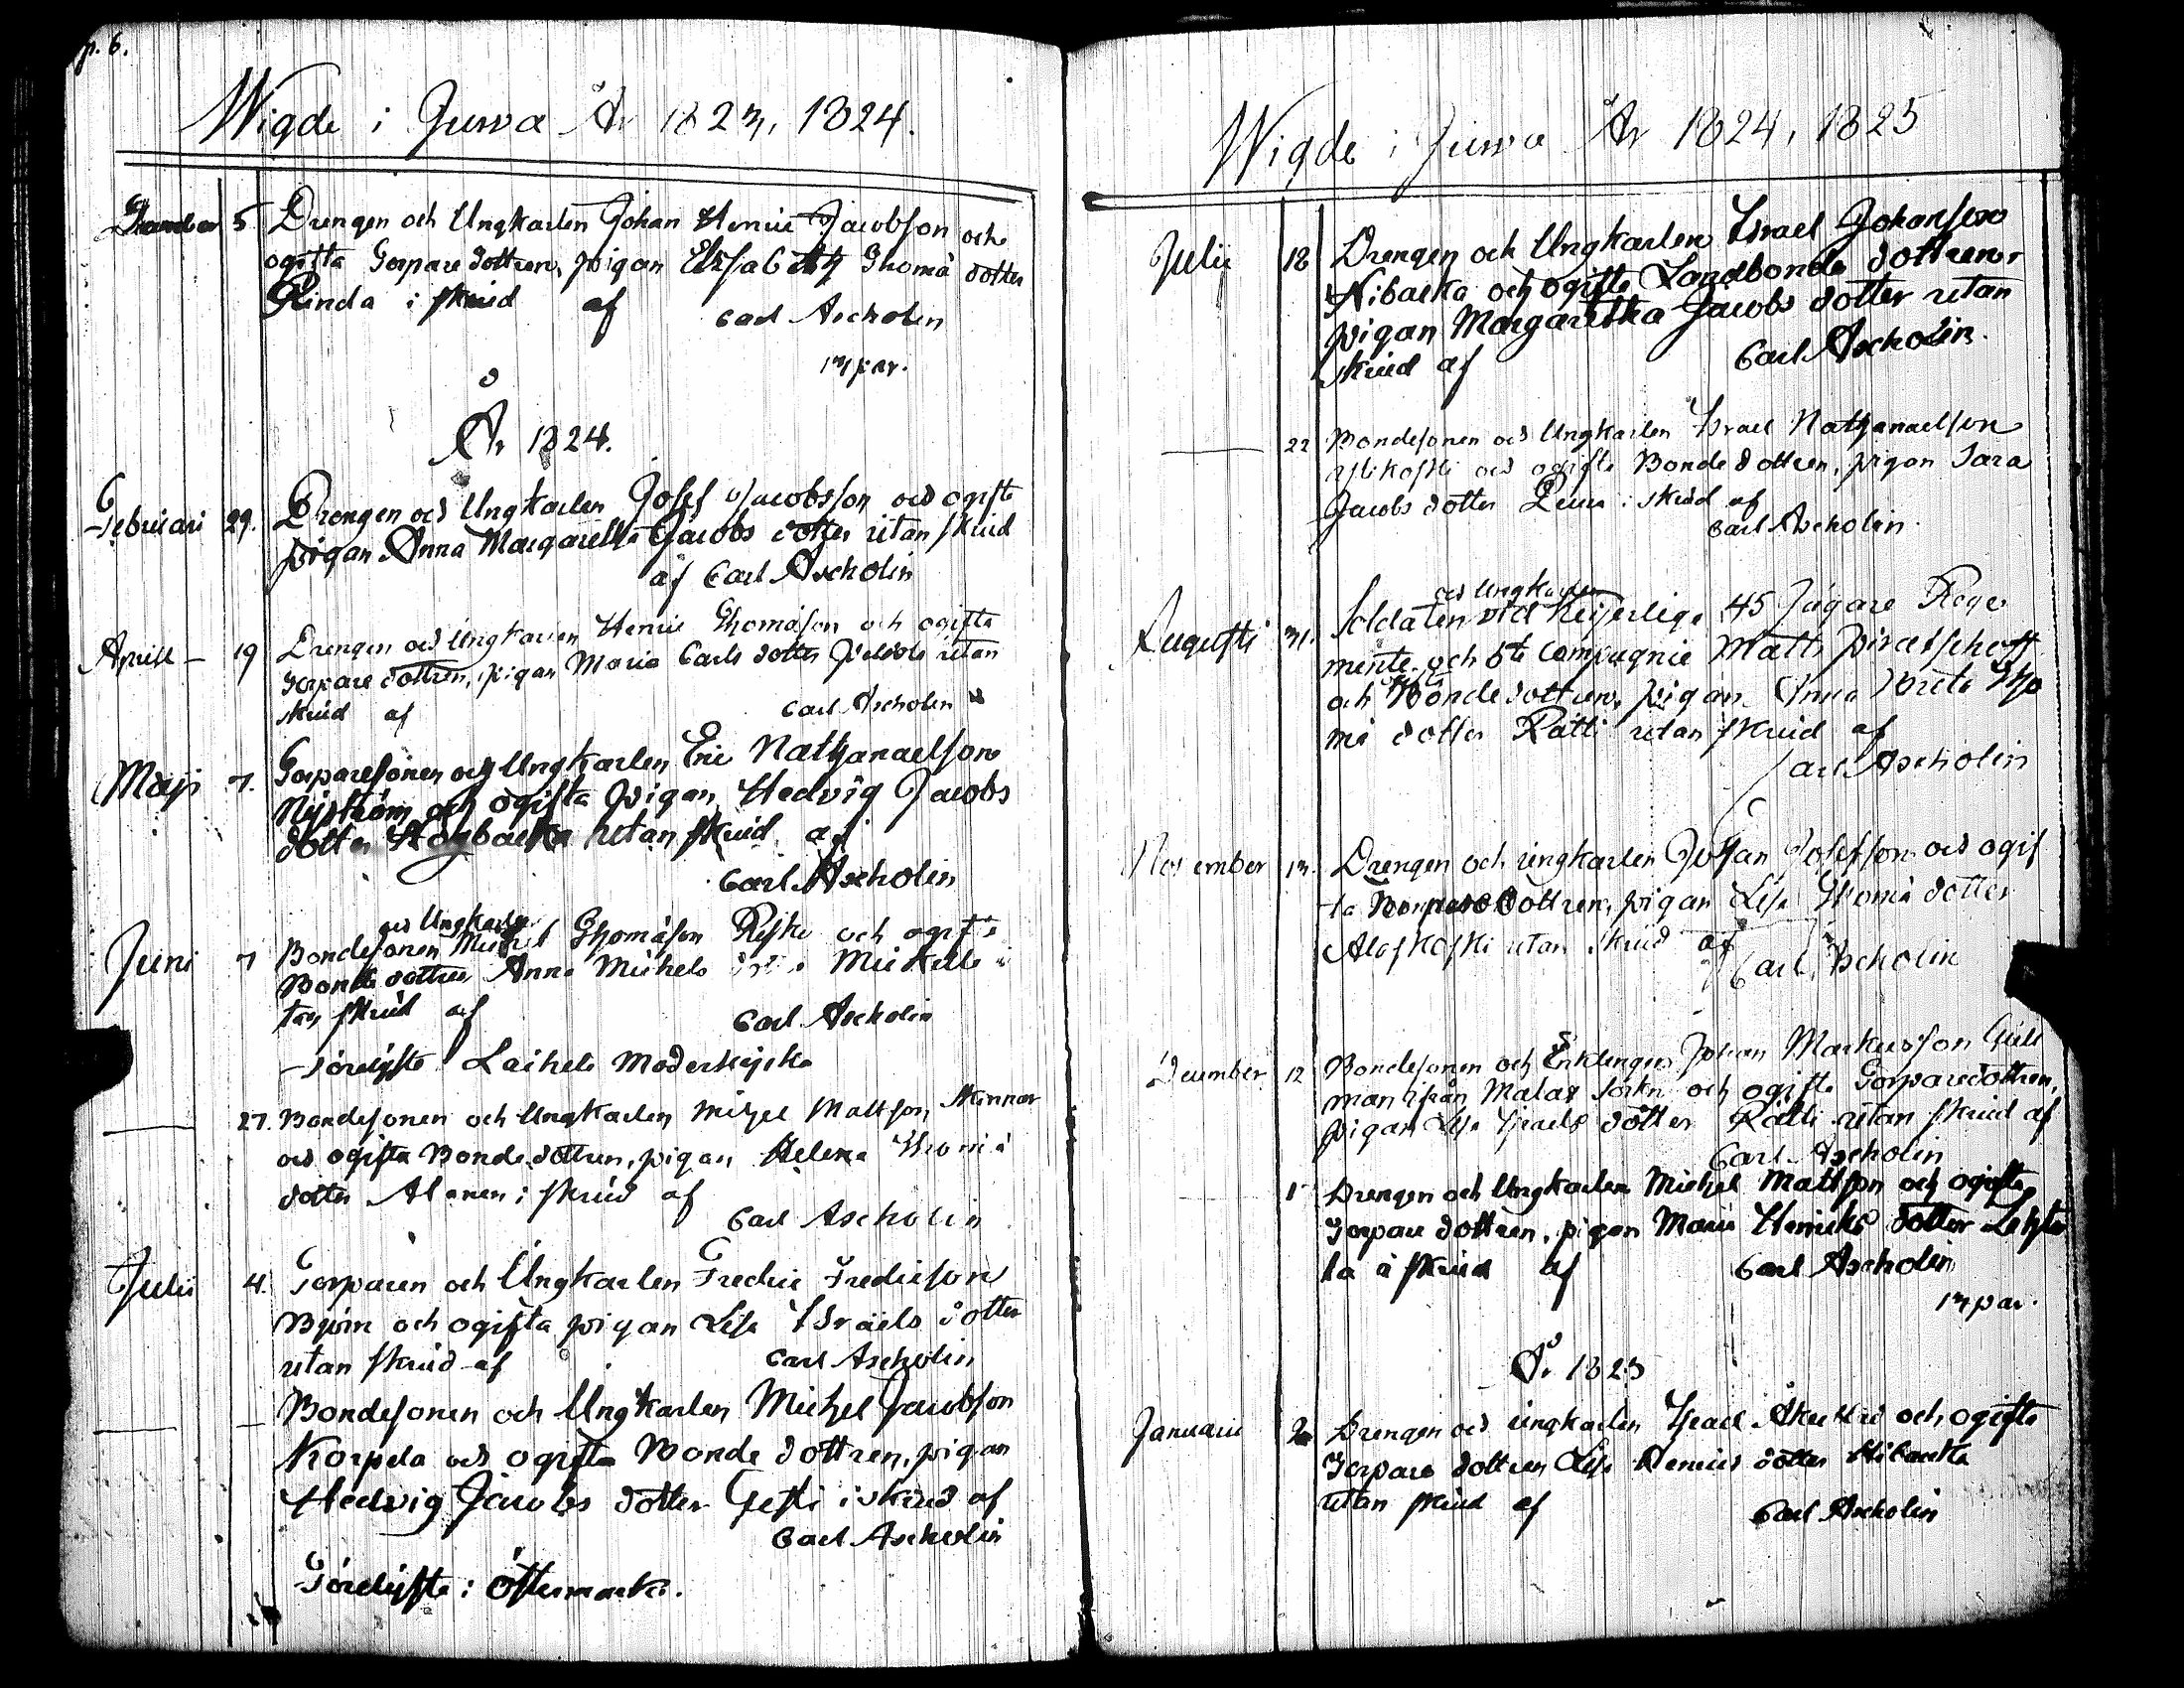 p. 6.
Wigde i Jurva År 1823, 1824.
5 Drengen och Ungkarlen Johan Henric Jacobsson och
ogifta Torpare dottren, pigan Elisabeth Thomä dotter
Rinda i skrud af Carl Ascholin
13 par.
År 1824.
Februari 29. Drengen och Ungkarlen Josef Jacobsson och ogifta
pigan Anna Margaretha Jacobs dotter utan skrud
af Carl Ascholin
Aprill 19 Drengen och Ungkarlen Henric Thomäson och ogifta
Torpare dottren, pigan Maria Carls dotter utan
skrud af Carl Ascholin
Maji 7. Torparesonen och Ungkarlen Eric Nathanaelson
Nyström och ogifta pigan Hedvig Jacobs
dotter Högbacka utan skrud af
Carl Ascholin
och Ungkarlen
Juni 7 Bondesonen Michel Thomäson och ogifta
Bonde dottren Anna Michels dotter u
tan skrud af Carl Ascholin
förelyste Laihela Moderkyrka
27. Bondesonen och Ungkarlen Michel Mattson Skinnar
och ogifta Bonde dottren, pigan Helena Thomä
dotter Alanen i skrud af
Carl Ascholin
Julii 4. Torparen och Ungkarlen Fredric Fredricson
Björn och ogifta pigan Lisa Israels dotter
utan skrud af Carl Ascholin
— Bondesonen och Ungkarlen Michel Jacobson
Korpela och ogifta Bonde dottren, pigan
Hedvig Jacobs dotter i skrud af
Carl Ascholin
Förelyste i Östermark.
Wigde i Jurva År 1824, 1825
Julii 18 Drengen och Ungkarlen Israel Johansson
Nibacka och ogifta Landbonde dottren,
pigan Margaretha Jacobs dotter utan
skrud af Carl Ascholin.
22 Bondesonen och Ungkarlen Israel Nathanaelson
och ogifta Bonde dottren, pigan Sara
Jacobs dotter i skrud af
Carl Ascholin.
och Ungkarlen
Augusti 31. Soldaten vid Keiserliga 45 Jägare Rege
mente och 5te Compagnie Matts
ogifta
och Bonde dottren, pigan Anna Brita Tho
mä dotter Rätti utan skrud af
Carl Ascholin
November 13. Drengen och ungkarlen Johan Josefsson och ogif
ta dottren, pigan Lisa Thomä dotter
Alaskoski utan skrud af
Carl Ascholin
December 12 Bondesonen och Enklingen Johan Markusson Gull
man ifrån Malax Sockn och ogifta Torparedottren,
pigan Lisa Israels dotter Rätti utan skrud af
Carl Ascholin
Drengen och Ungkarlen Michel Mattson och ogifta
Torpare dottren, pigan Maria Henricks dotter
i skrud af Carl Ascholin
13 par.
År 1825
Januarii 2 Drengen och ungkarlen Israel och ogifta
Torpare dottren Lisa Henrics dotter Nibacka
utan skrud af Carl Ascholin